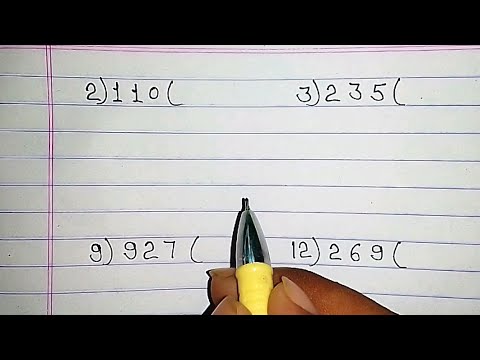 2)110( 3)235(
9)927( 12)269(